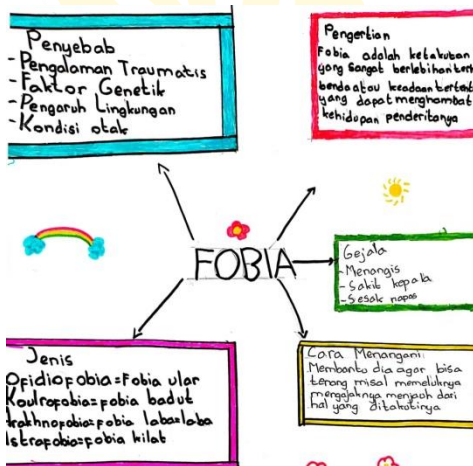 Penyebab
- Pengalaman Traumatis
- Faktor Genetik
- Pengaruh Lingkungan
- Kondisi otak
Pengertian
Fobia adalah ketakutan
yang sangat berlebihan
benda atau keadaan
yang dapat menghambat
kehidupan penderitanya
FOBIA
Gejala
- Menangis
- Sakit kepala
- Sesak napas
Jenis
Ofidiofobia=Fobia ular
Koulrofobia=fobia badut
fobia laba=laba
Istrafobia=fobia kilat
Cara Menangani:
Membantu dia agar bisa
tenang misal memeluknya
mengajaknya menjauh dari
hal yang ditakutinya